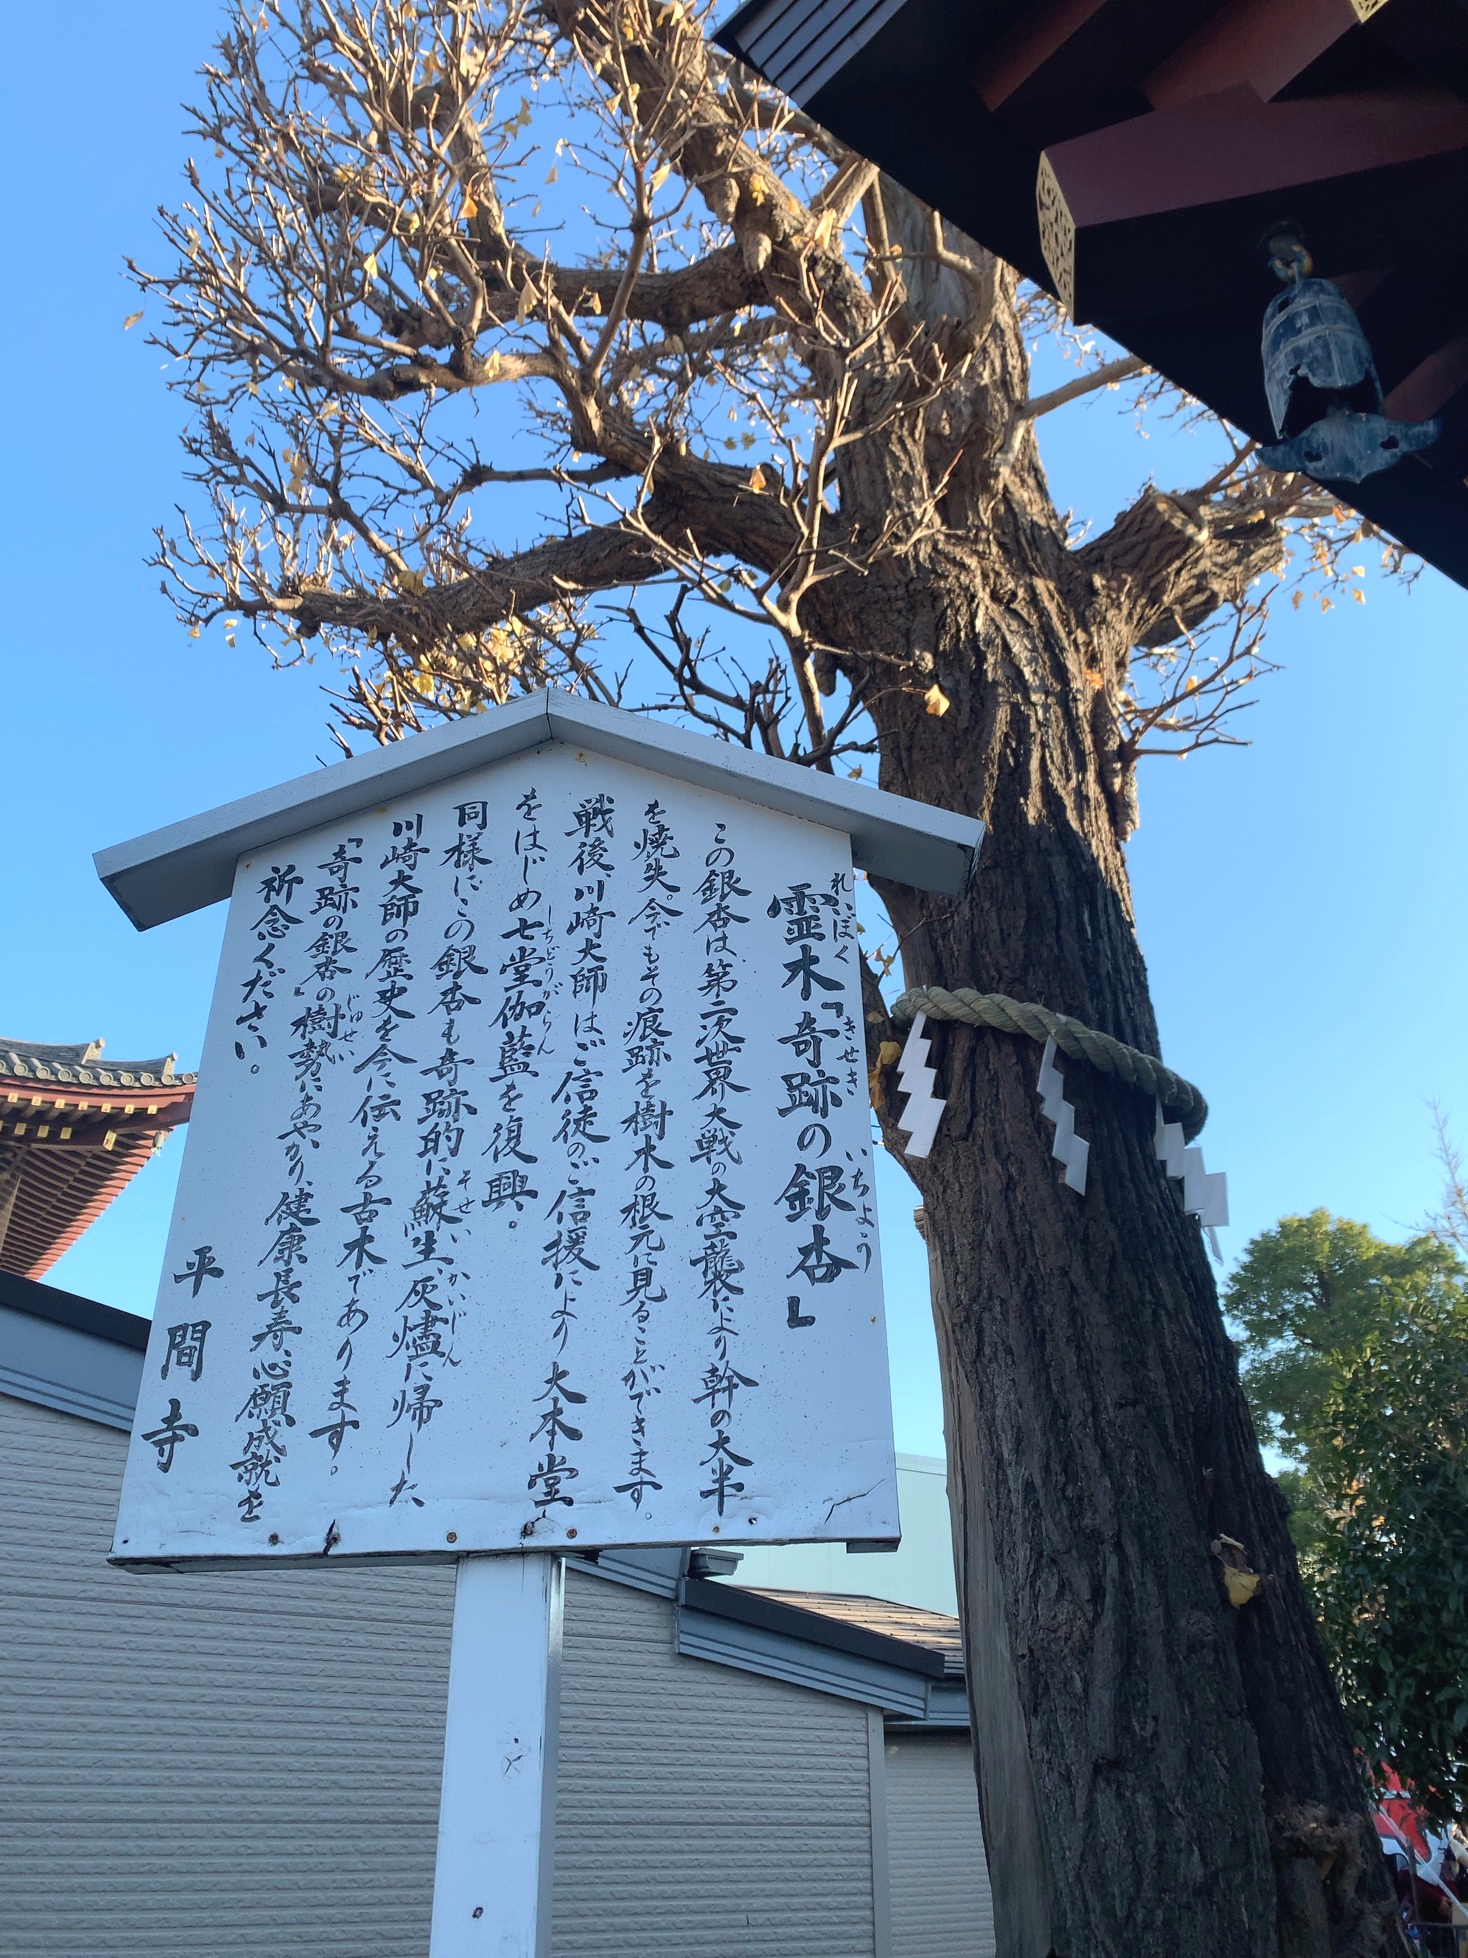 霊木「奇跡の銀杏」
れいぼく きせき いちょう
この銀杏は第二次世界大戦の大空襲により幹の大半
を焼失。今でもその痕跡を樹木の根元に見ることができます。
戦後、川崎大師はご信徒のご信援により大本堂
をはじめ七堂伽藍を復興。
しちどうがらん
同様に、この銀杏も奇跡的に蘇生、灰燼に帰した
そせい かいじん
川崎大師の歴史を今に伝える古木であります。
「奇跡の銀杏」の樹勢にあやかり、健康長寿、心願成就を
じゅせい
祈念ください。
平間寺